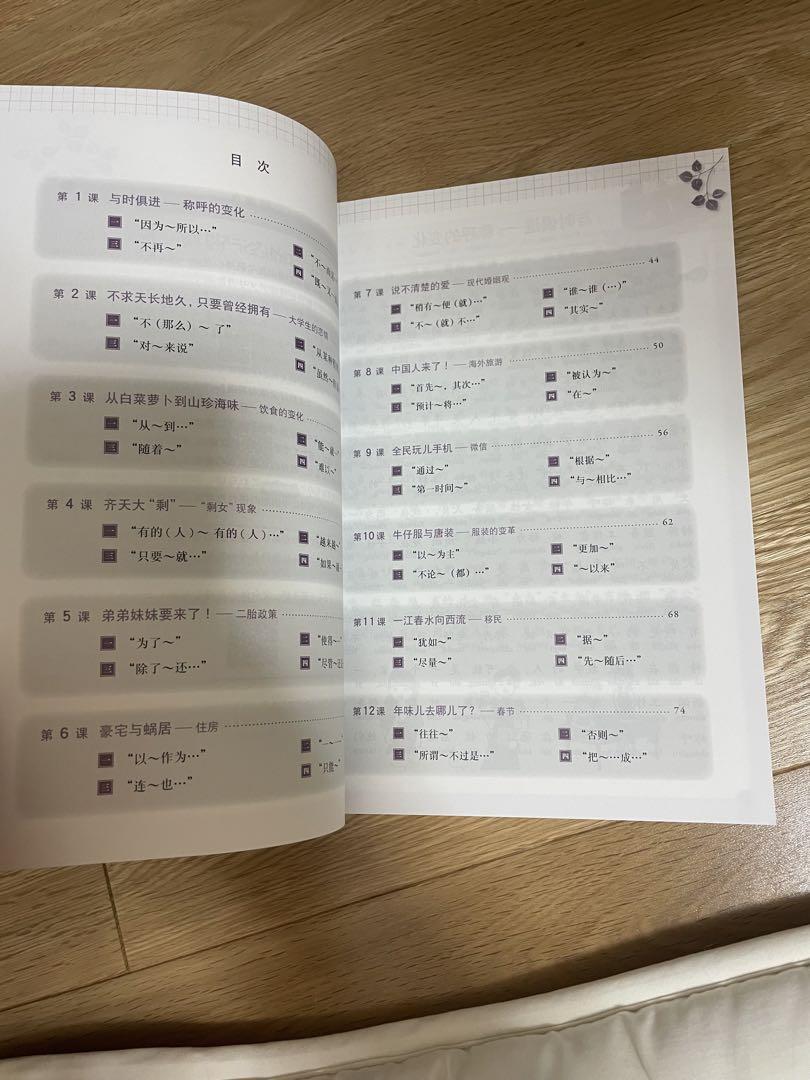 目 次
第 1 课 与时俱进——称呼的变化
一 “因为～所以…”
三 “不再～” 四
第 2 课 不求天长地久，只要曾经拥有——大学生的恋情
一 “不（那么）～ 了” 二
三 “对～来说” 四
第 3 课 从白菜萝卜到山珍海味——饮食的变化
一 “从～到…” 二
三 “随着～” 四 “难以～”
第 4 课 齐天大“剩”——“剩女”现象
一 “有的（人）～ 有的（人）…” 二
三 “只要～就…” 四
第 5 课 弟弟妹妹要来了！——二胎政策
一 “为了～” 二 “使得～”
三 “除了～还…” 四
第 6 课 豪宅与蜗居——住房
一 “以～作为…” 二
三 “连～也…” 四 “只能～”
第 7 课 说不清楚的爱——现代婚姻观 44
一 “稍有～便（就）…” 二 “谁～谁（…）”
三 “不～（就）不…” 四 “其实～”
第 8 课 中国人来了！——海外旅游 50
一 “首先～，其次…” 二 “被认为～”
三 “预计～将…” 四 “在～”
第 9 课 全民玩儿手机——微信 56
一 “通过～” 二 “根据～”
三 “第一时间～” 四 “与～相比…”
第10课 牛仔服与唐装——服装的变革 62
一 “以～为主” 二 “更加～”
三 “不论～（都）…” 四 “～以来”
第11课 一江春水向西流——移民 68
一 “犹如～” 二 “据～”
三 “尽量～” 四 “先～随后…”
第12课 年味儿去哪儿了？——春节 74
一 “往往～” 二 “否则～”
三 “所谓～不过是…” 四 “把～…成…”